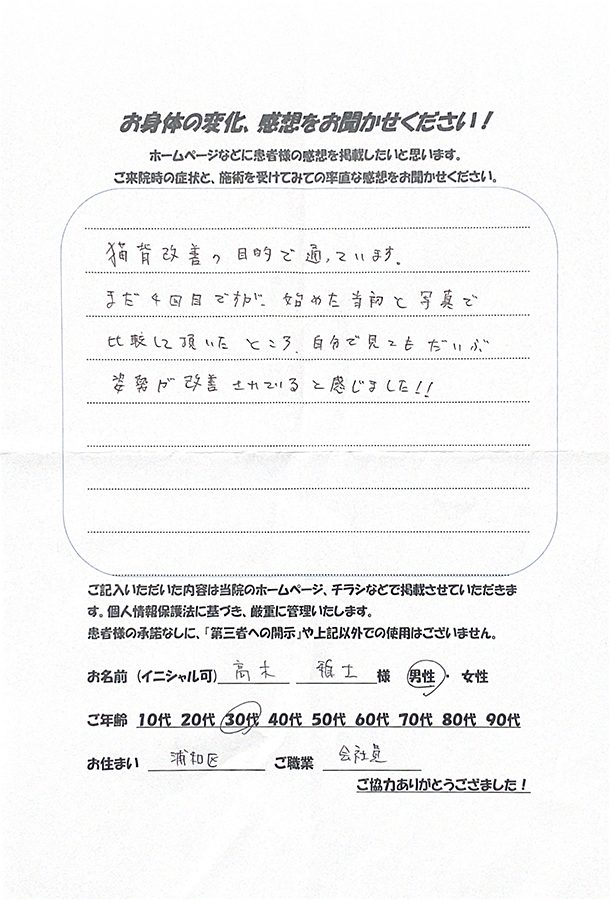 お身体の変化、感想をお聞かせください！
ホームページなどに患者様の感想を掲載したいと思います。
ご来院時の症状と、施術を受けてみての率直な感想をお聞かせください。
猫背改善の目的で通っています。
まだ4回目ですが、始めた当初と写真で
比較して頂いたところ、自分で見てもだいぶ
姿勢が改善されていると感じました!!
ご記入いただいた内容は当院のホームページ、チラシなどで掲載させていただきま
す。個人情報保護法に基づき、厳重に管理いたします。
患者様の承諾なしに、「第三者への開示」や上記以外での使用はございません。
お名前（イニシャル可） 高木 雅士 様 男性・女性
ご年齢 10代 20代 30代 40代 50代 60代 70代 80代 90代
お住まい 浦和区 ご職業 会社員
ご協力ありがとうござました！